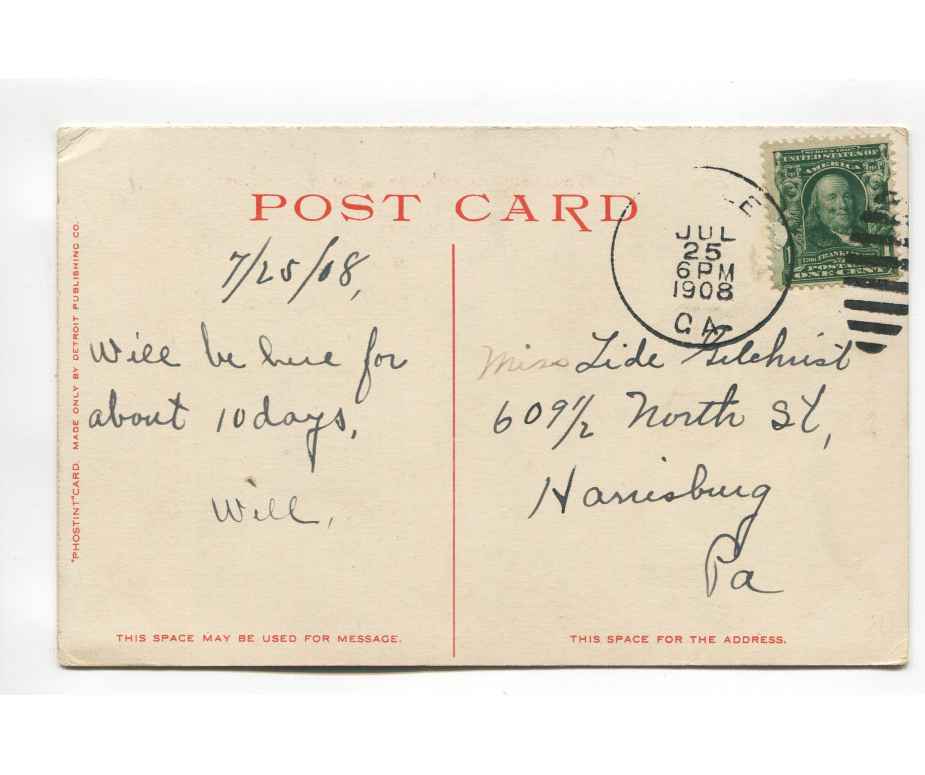 POST CARD
7/25/08,
Will be here for
about 10 days,
Will,
THIS SPACE MAY BE USED FOR MESSAGE.
"PHOSTINT" CARD. MADE ONLY BY DETROIT PUBLISHING CO.
LE
JUL
25
6PM
1908
SERIES 1902
UNITED STATES OF
AMERICA
FRANKLIN
POSTAGE
ONE CENT
Miss Lide Gilchrist
609 1/2 North St,
Harrisburg
Pa
THIS SPACE FOR THE ADDRESS.